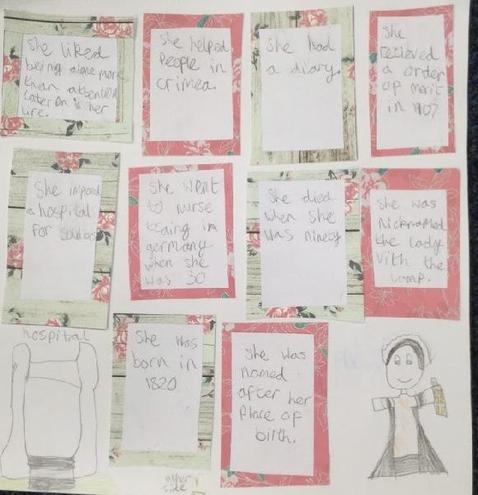 She liked
being alone mor
than attention
Later on in her
Life.
She helped
People in
crimea.
She had
a diary.
She
recieved
a order
of merit
in 1907
She
a hospital
For
She went
to nurse
in
germany
when she
was 30
She died
when she
was ninety
She was
Nicknamed
the lady
With the
Lamp.
hospital
She was
born in
1820
She was
named
after her
Place of
birth.
other
side